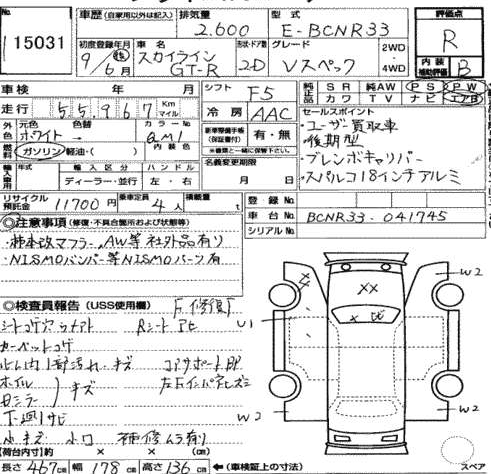 No. 15031
車歴 (自家用以外は記入) 排気量 2.600 型式 E-BCNR33 評価点 R
初度登録年月 9年6月 車名 スカイライン GT-R 形状・ドア数 2D グレード Vスペック 2WD・4WD 内装補助評価 B
車検 年 月 シフト F5 純正品 SR 純AW PS PW
走行 55,967 Km マイル 冷房 AAC カワ TV ナビ エアB
外色 元色 ホワイト 色替 カラーNo. QM1 内装色
燃料 ガソリン・軽油・( )
新車整備手帳(保証書付) 有・無
※書類と一緒に保管して下さい。
セールスポイント
・ユーザー買取車
・後期型
・ブレンボキャリパー
・スパルコ18インチアルミ
輸入車用 年 輸入区分 ハンドル ディーラー・並行 左・右
名義変更期限 月 日
リサイクル預託金 11700円 乗車定員 4人 積載量 t
登録No.
車台No. BCNR33-041745
シリアルNo.
◎注意事項 (修復・不具合個所および状態等)
・柿本改マフラー、AW等社外品有り
・NISMOバンパー等NISMOパーツ有
◎検査員報告 (USS使用欄)
シートコゲアナ Rシート
カーペットコゲ
内 1部汚れ・キズ コアサポート
ホイル キズ
ドミラー
下廻りサビ
小キズ 小凹 補修ムラ有り
W2
U1
W2
W2
XX
X
【荷台内寸】約 × × (cm)
長さ 467cm 幅 178cm 高さ 136cm ←(車検証上の寸法) スペア